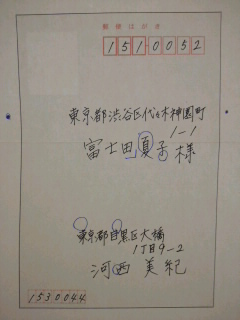 郵便はがき
1510052
東京都渋谷区代々木神園町
1-1
富士田夏子様
東京都目黒区大橋
1丁目9-2
河西美紀
1530044